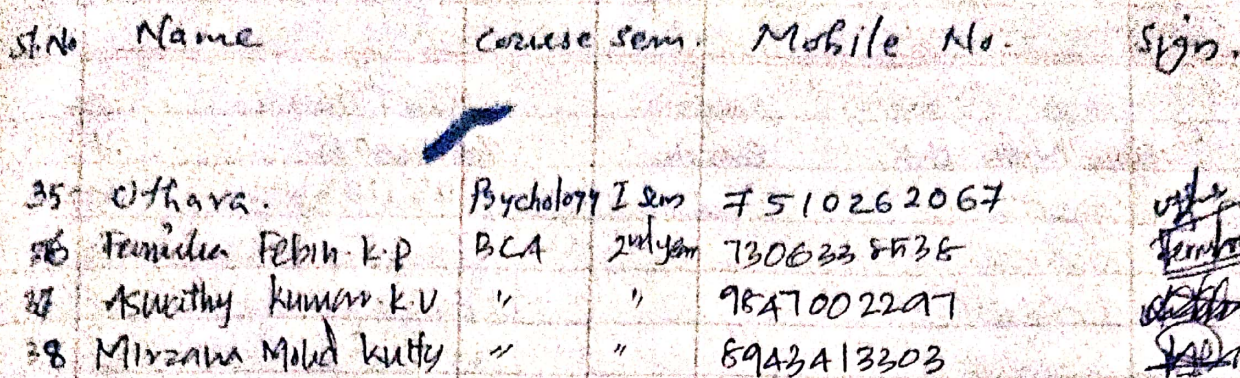 Sl.No Name Course Sem. Mobile No. Sign.
35 Uthara. Psychology I sem 7510262067
36 Febin K.P BCA 2nd year
37 Aswathy Kumar K.V " " 9847002297
38 Mirzana Mohd Kutty " " 8943413303